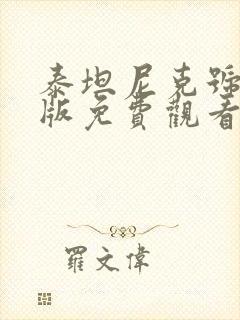 泰坦尼克號
版免費觀看
羅文偉